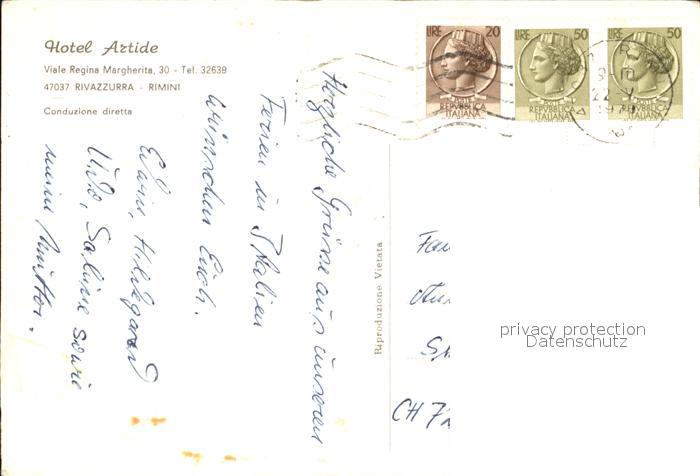 Hotel Artide
Viale Regina Margherita, 30 - Tel. 32639
47037 RIVAZZURRA - RIMINI
Conduzione diretta
LIRE 20
REPVBBLICA
ITALIANA
LIRE 50
REPVBBLICA
ITALIANA
LIRE 50
REPVBBLICA
ITALIANA
Herzliche Grüsse aus unseren
Ferien in Italien
wünschen Euch.
Hildegard
Udo, Sabine sowie
meine Mutter.
Riproduzione Vietata
Fam
CH 72
privacy protection
Datenschutz